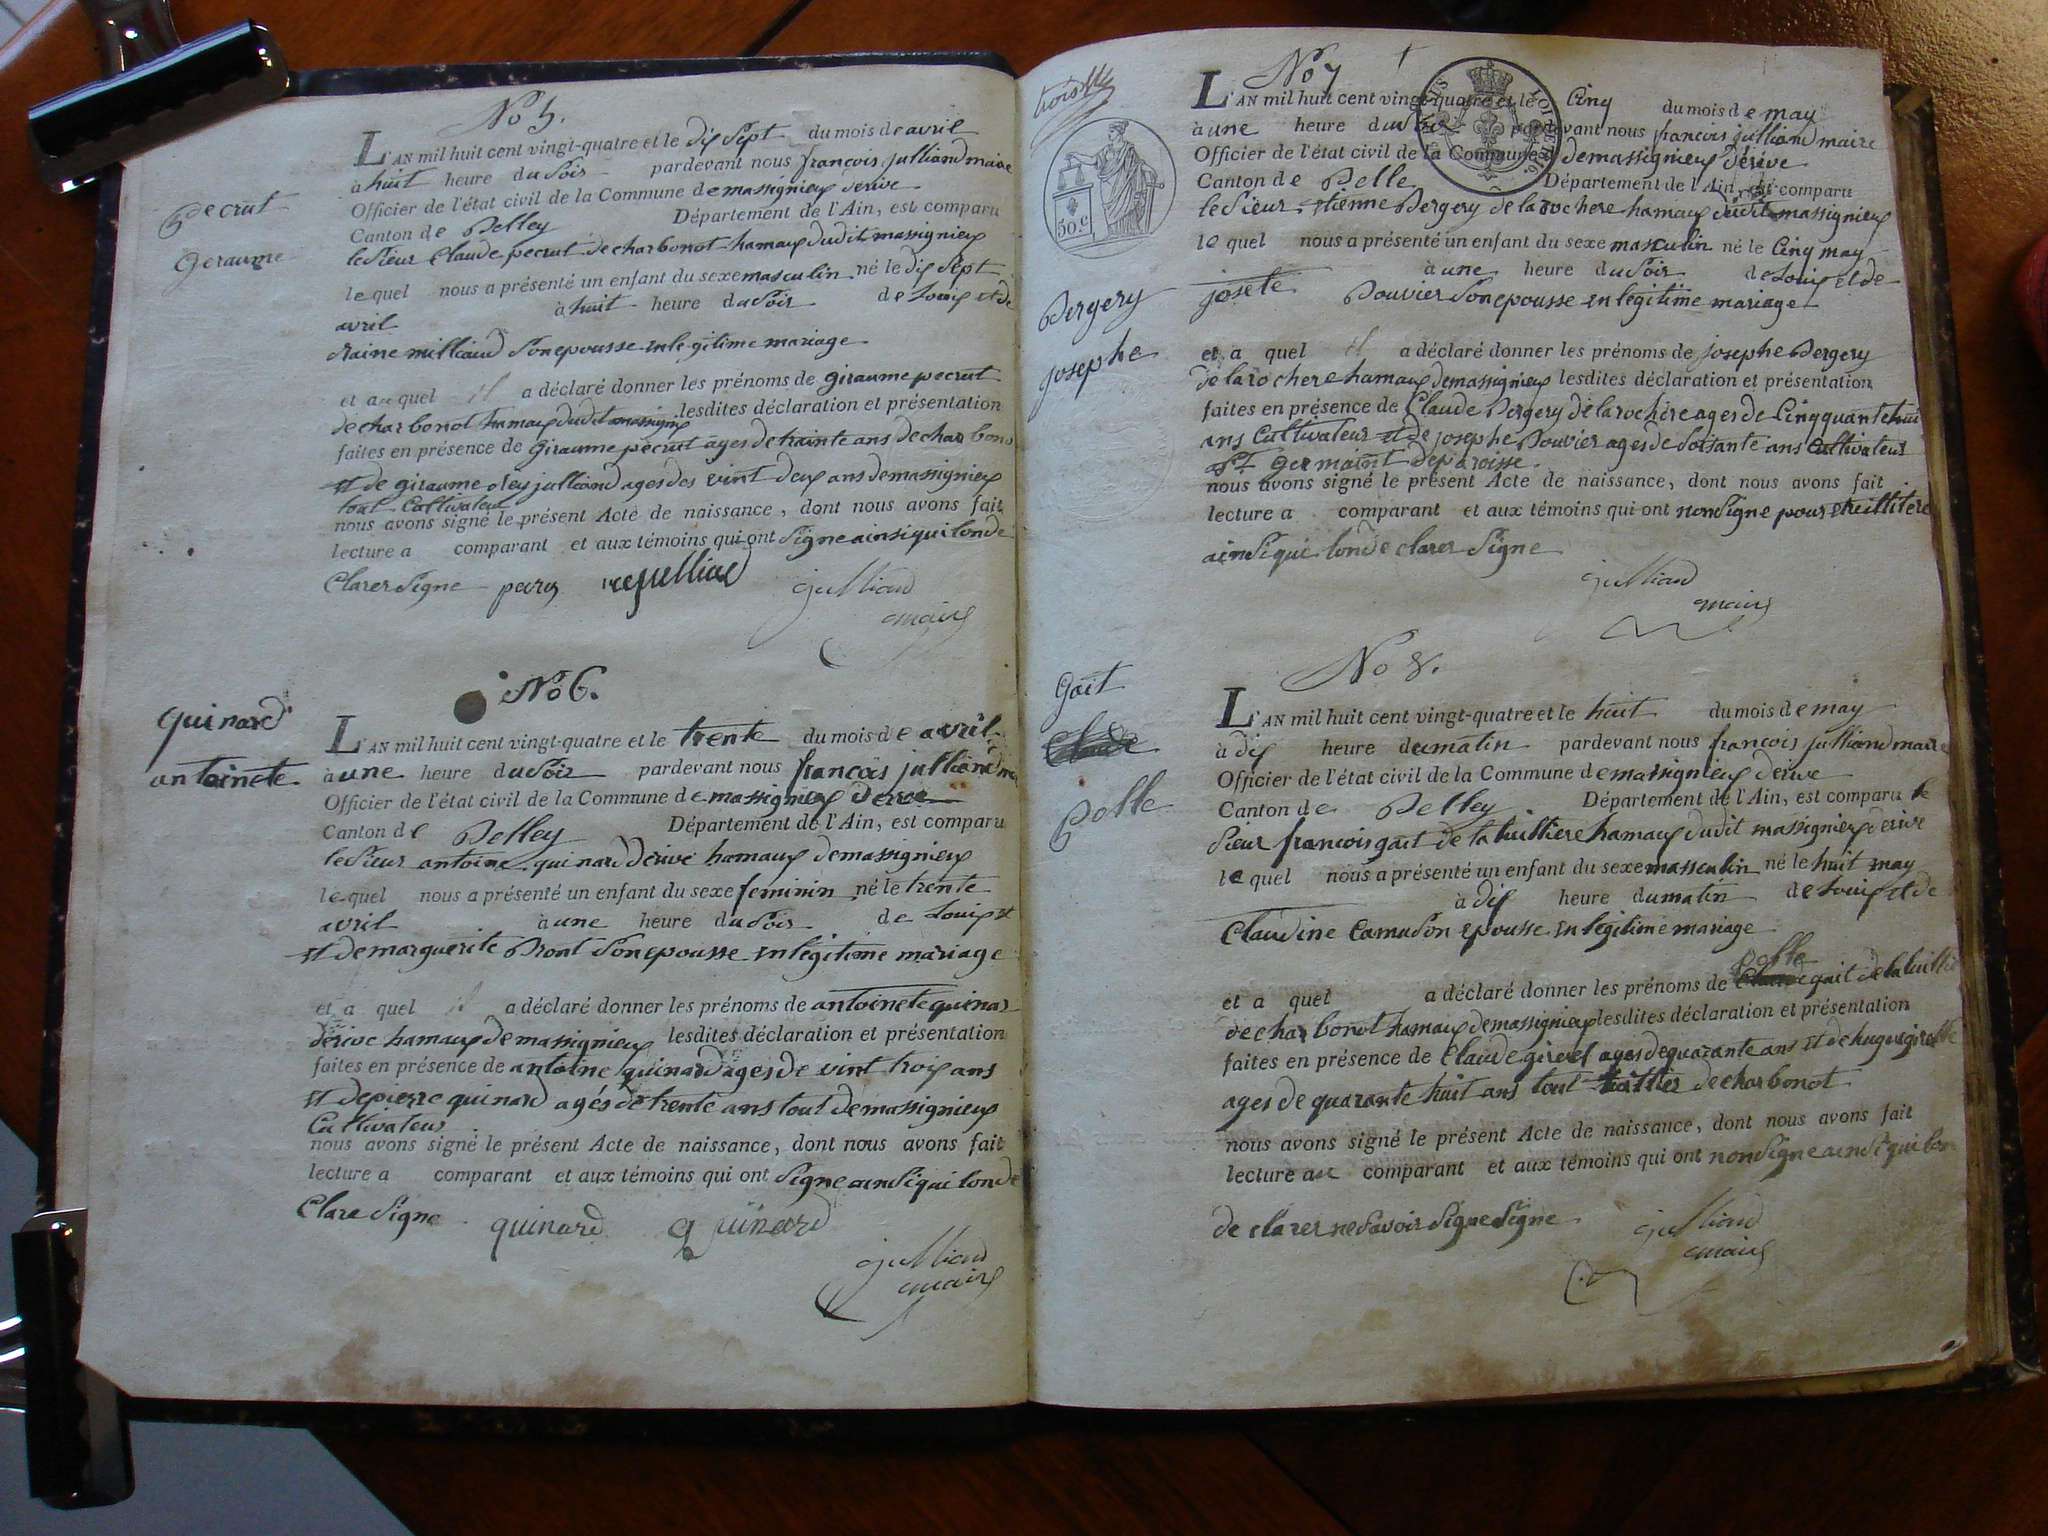 No 5.
L'AN mil huit cent vingt-quatre et le dix sept du mois de avril
à huit heure du Soir pardevant nous françois julliand maire
Officier de l'état civil de la Commune de massignieux derive
Canton de Belley Département de l'Ain, est comparu
le Sieur Claude pecrut de charbonot hamaux dudit massignieux
le quel nous a présenté un enfant du sexe masculin né le dix sept
avril à huit heure du Soir de Louis et de
milliand Son epousse en legitime mariage
et au quel il a déclaré donner les prénoms de giraume pecrut
de charbonot hamaux dudit massignieux lesdites déclaration et présentation
faites en présence de giraume pecrut ages de trainte ans de charbono
et de giraume rey julliand ages des vint deux ans de massignieux
tout Cultivateur
nous avons signé le présent Acte de naissance, dont nous avons fait
lecture a comparant et aux témoins qui ont Signe ainsi qui lon de
Clarer Signe julliand
maire
pecrut
geraume
No 6.
L'AN mil huit cent vingt-quatre et le trente du mois de avril
à une heure du Soir pardevant nous françois julliand
Officier de l'état civil de la Commune de massignieux derive
Canton de Belley Département de l'Ain, est comparu
le Sieur antoine quinard derive hamaux de massignieux
le quel nous a présenté un enfant du sexe feminin né le trente
avril à une heure du Soir de Louis et
et de marguerite Bront Son epousse en legitime mariage
et a quel il a déclaré donner les prénoms de antoinete quinar
derive hamaux de massignieux lesdites déclaration et présentation
faites en présence de antoine quinard ages de vint trois ans
et de pierre quinard agés de trente ans tout de massignieux
Cultivateur
nous avons signé le présent Acte de naissance, dont nous avons fait
lecture a comparant et aux témoins qui ont Signe ainsi qui lon de
Clare Signe quinard quinard
julliand
maire
quinard
antoinete
trois
50 c
No 7
L'AN mil huit cent vingt-quatre et le Cinq du mois de may
à une heure du Soir pardevant nous françois julliand maire
Officier de l'état civil de la Commune de massignieux dérive
Canton de Belle Département de l'Ain, est comparu
le Sieur etienne Bergery de la rochere hamaux dudit massignieux
le quel nous a présenté un enfant du sexe masculin né le Cinq may
à une heure du Soir de Louis et de
josete Bouvier Son epousse en legitime mariage
et a quel il a déclaré donner les prénoms de josephe Bergery
de la rochere hamaux de massignieux lesdites déclaration et présentation
faites en présence de Claude Bergery de la rochère ages de Cinqquante huit
ans Cultivateur et de josephe Bouvier ages de Soisante ans Cultivateur
germaint de paroisse
nous avons signé le présent Acte de naissance, dont nous avons fait
lecture a comparant et aux témoins qui ont non Signe pour etre illitere
ainsi qui lon de clarer Signe
julliand
maire
Bergery
josephe
No 8.
L'AN mil huit cent vingt-quatre et le huit du mois de may
à dix heure du matin pardevant nous françois julliand maire
Officier de l'état civil de la Commune de massignieux derive
Canton de Belley Département de l'Ain, est comparu le
Sieur francois gait de la tuilliere hamaux dudit massignieux derive
le quel nous a présenté un enfant du sexe masculin né le huit may
à dix heure du matin de Louis et de
Claudine Camu Son epousse en legitime mariage
polle
et a quel a déclaré donner les prénoms de Claude gait de la tuillie
de charbonot hamaux de massignieux lesdites déclaration et présentation
faites en présence de Claude girerd ages de quarante ans et de hugue
ages de quarante huit ans tout de charbonot
nous avons signé le présent Acte de naissance, dont nous avons fait
lecture au comparant et aux témoins qui ont non Signe ainsi qui lon
de clarer ne Savoir Signe Signe
julliand
maire
Gait
Claude
polle